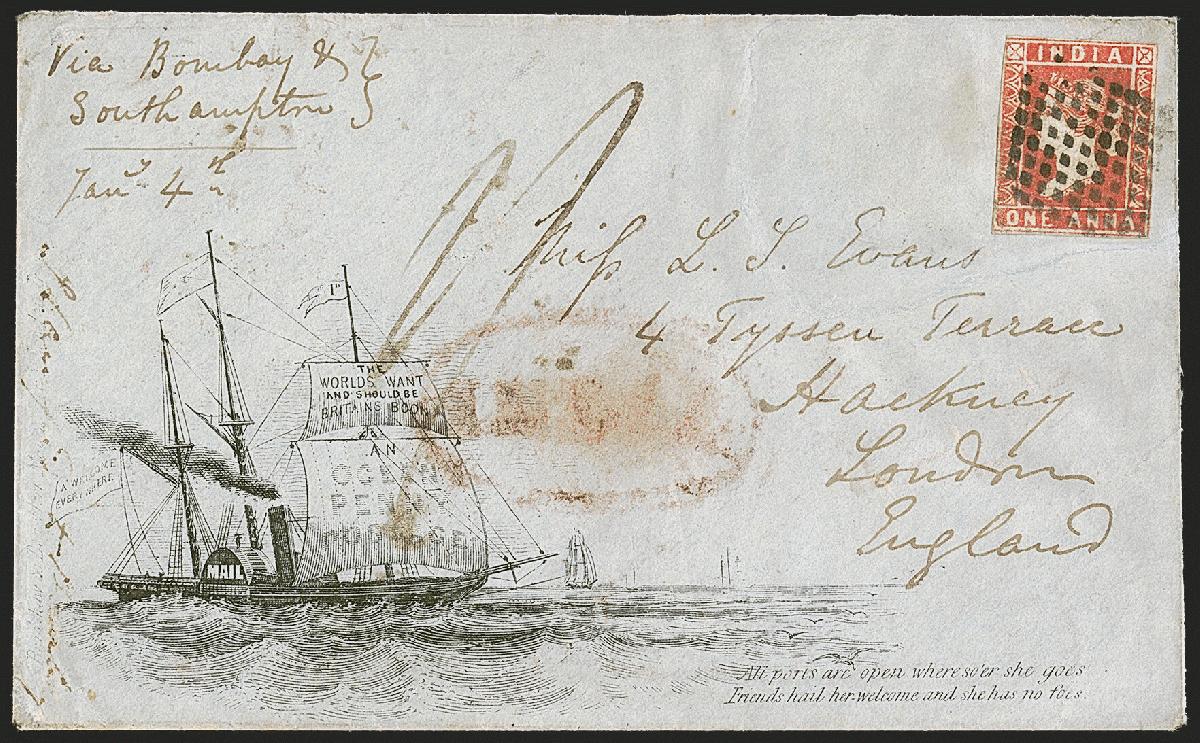 Via Bombay & }
Southampton }
Jany 4th
INDIA
ONE ANNA
Miss L. S. Evans
4 Tyssen Terrace
Hackney
London
England
1D
THE
WORLDS WANT
AND SHOULD BE
BRITAINS BOON
AN
OCEAN
PENNY
POSTAGE
A WELCOME
EVERYWHERE
MAIL
All ports are open where so'er she goes
Friends hail her welcome and she has no foes.